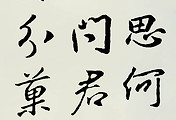 思何
問君
分菓